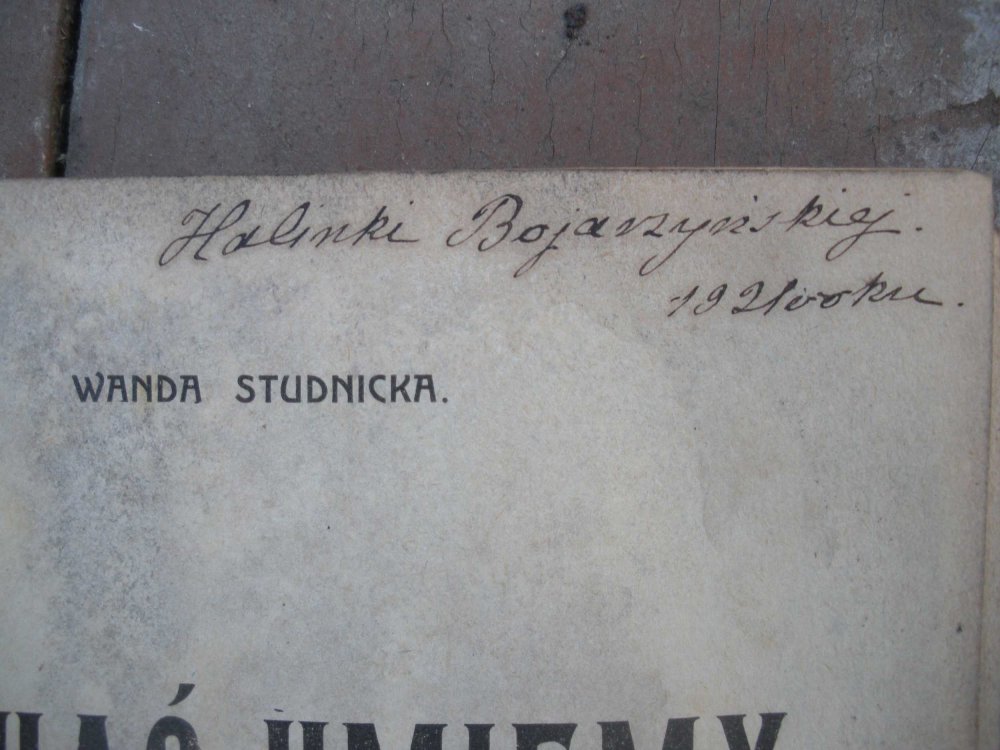 Halinki Bojarzyńskiej.
1921 roku.
WANDA STUDNICKA.
UMIEMY